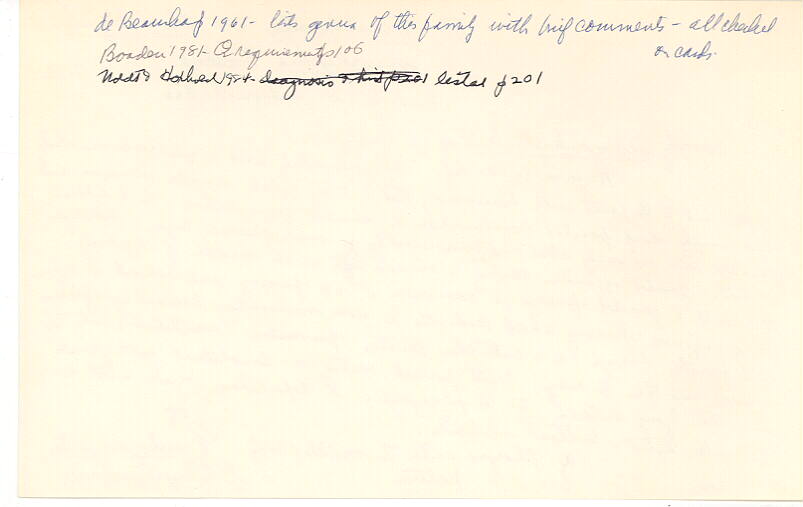 de Beauchamp 1961 - lists genera of this family with brief comments - all checked
on cards.
Boaden 1981 - O2 requirements p106
Noldt & 1984 - diagnosis listed p 201